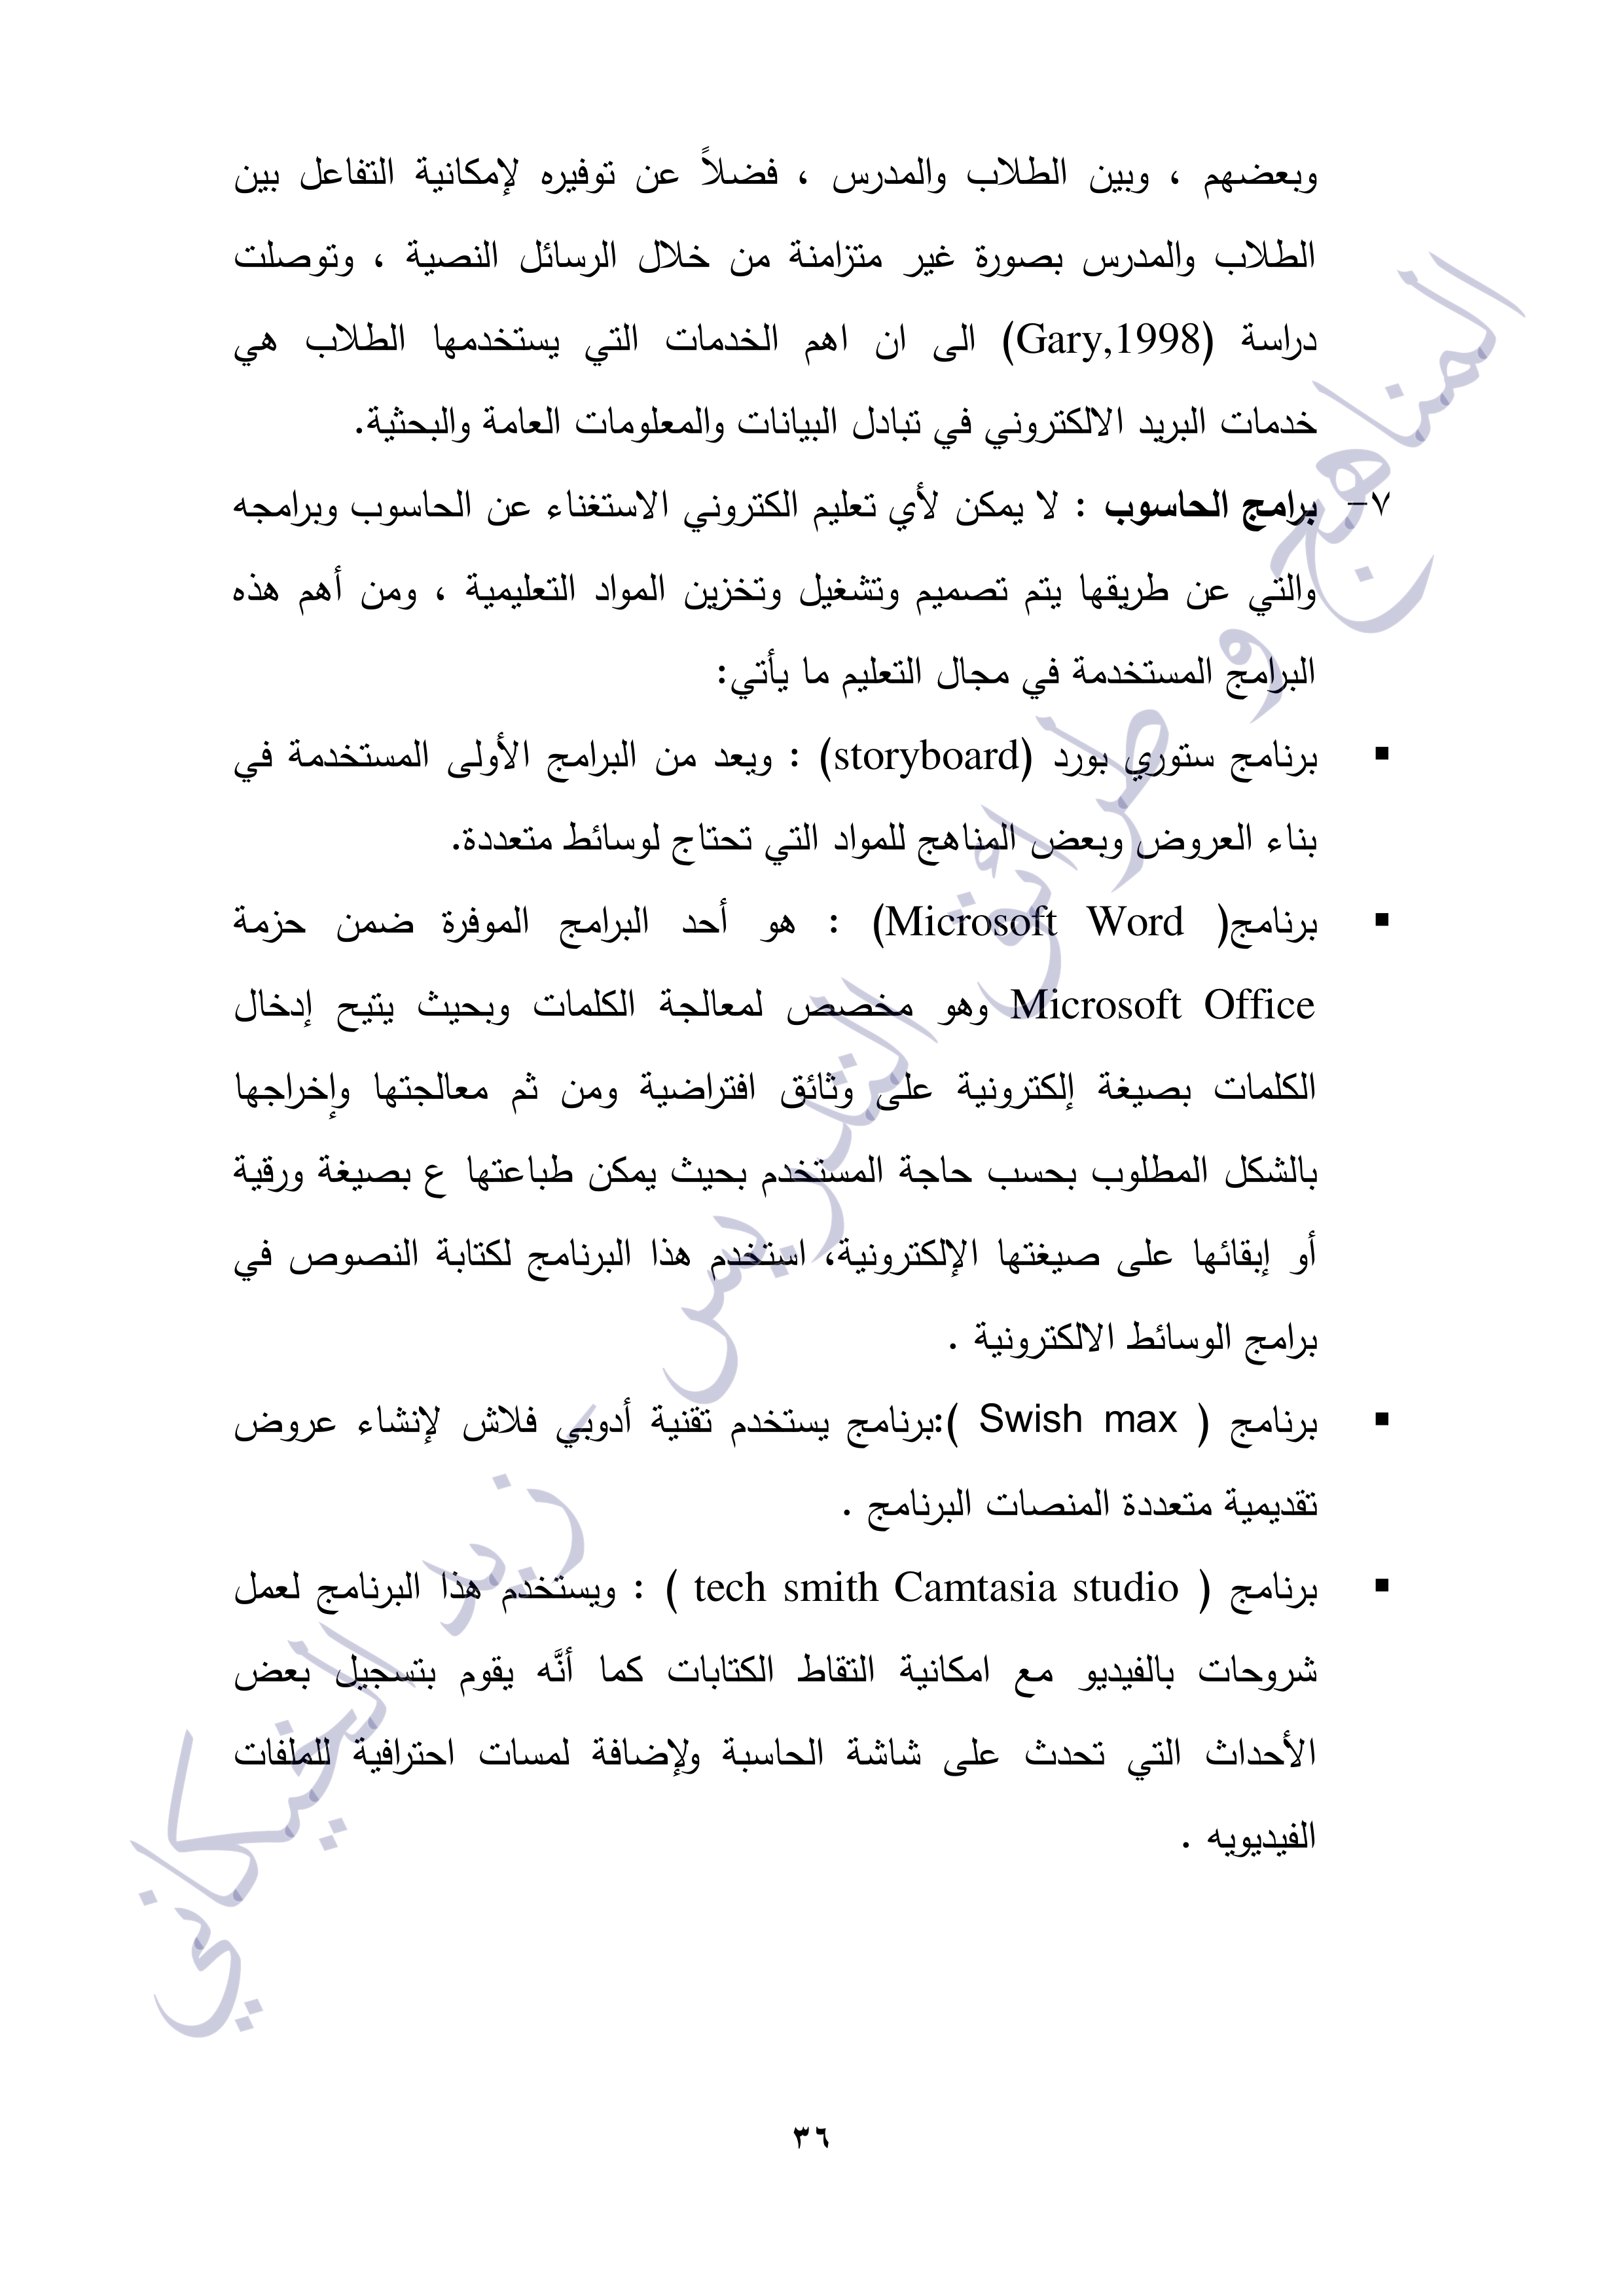 وبعضهم ، وبين الطلاب والمدرس ، فضلاً عن توفيره لإمكانية التفاعل بين
الطلاب والمدرس بصورة غير متزامنة من خلال الرسائل النصية ، وتوصلت
دراسة (Gary,1998) الى ان اهم الخدمات التي يستخدمها الطلاب هي
خدمات البريد الالكتروني في تبادل البيانات والمعلومات العامة والبحثية.
٧- برامج الحاسوب : لا يمكن لأي تعليم الكتروني الاستغناء عن الحاسوب وبرامجه
والتي عن طريقها يتم تصميم وتشغيل وتخزين المواد التعليمية ، ومن أهم هذه
البرامج المستخدمة في مجال التعليم ما يأتي:
▪ برنامج ستوري بورد (storyboard) : ويعد من البرامج الأولى المستخدمة في
بناء العروض وبعض المناهج للمواد التي تحتاج لوسائط متعددة.
▪ برنامج( Microsoft Word) : هو أحد البرامج الموفرة ضمن حزمة
Microsoft Office وهو مخصص لمعالجة الكلمات وبحيث يتيح إدخال
الكلمات بصيغة إلكترونية على وثائق افتراضية ومن ثم معالجتها وإخراجها
بالشكل المطلوب بحسب حاجة المستخدم بحيث يمكن طباعتها ع بصيغة ورقية
أو إبقائها على صيغتها الإلكترونية، استخدم هذا البرنامج لكتابة النصوص في
برامج الوسائط الالكترونية .
▪ برنامج ( Swish max ):برنامج يستخدم تقنية أدوبي فلاش لإنشاء عروض
تقديمية متعددة المنصات البرنامج .
▪ برنامج ( tech smith Camtasia studio ) : ويستخدم هذا البرنامج لعمل
شروحات بالفيديو مع امكانية التقاط الكتابات كما أنَّه يقوم بتسجيل بعض
الأحداث التي تحدث على شاشة الحاسبة ولإضافة لمسات احترافية للملفات
الفيديويه .
المناهج و طرائق التدريس _ زيد الخيكاني
٣٦